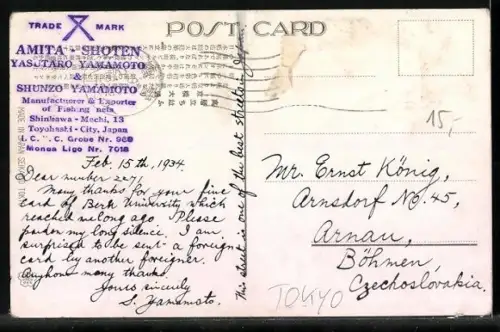 TRADE MARK
POST CARD
AMITA - SHOTEN
YASUTARO YAMAMOTO
&
SHUNZO YAMAMOTO
Manufacturer & Exporter
of Fishing nets
Shinkawa - Mochi, 13
Toyohashi - City, Japan
I. C. "C. Grobe Nr. 969
Monda Ligo Nr. 7015
Feb. 15th, 1934.
Dear number 2271
Many thanks for your fine
card of Berk University which
reached me long ago. Please
paden my long silence. I am
surprised to be sent a foreign
card by another foreigner.
Anyhow many thanks.
Yours sincerely
S. Yamamoto.
This street is one of the best streets in Japan.
15,-
Mr. Ernst König,
Arnsdorf No. 45,
Arnau,
Böhmen,
Czechoslovakia.
TOKYO